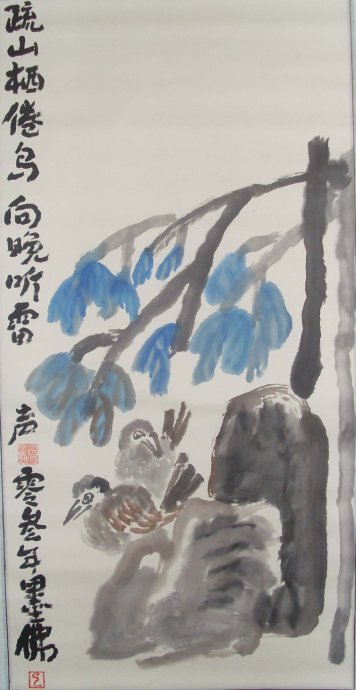 疏山栖倦鸟向晚听雷
声
零叁年墨佛